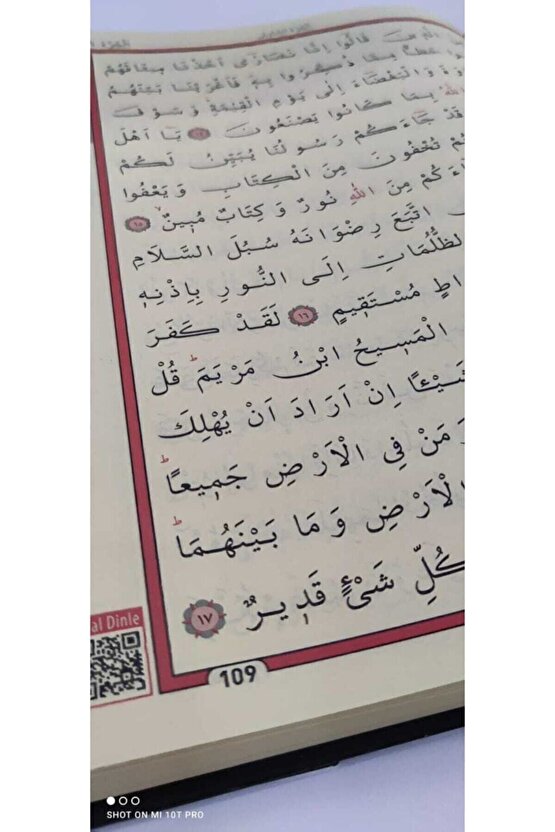 قَالُٓوا اِنَّا نَصَارٰٓى اَخَذْنَا مِيثَاقَهُمْ
حَظًّا مِمَّا ذُكِّرُوا بِهِ فَاَغْرَيْنَا بَيْنَهُمُ
وَالْبَغْضَٓاءَ اِلٰى يَوْمِ الْقِيٰمَةِ وَسَوْفَ
اللّٰهُ بِمَا كَانُوا يَصْنَعُونَ ﴿١٤﴾ يَٓا اَهْلَ
قَدْ جَٓاءَكُمْ رَسُولُنَا يُبَيِّنُ لَكُمْ
تُخْفُونَ مِنَ الْكِتَابِ وَيَعْفُوا
مِنَ اللّٰهِ نُورٌ وَكِتَابٌ مُبِينٌ ﴿١٥﴾
اتَّبَعَ رِضْوَانَهُ سُبُلَ السَّلَامِ
الظُّلُمَاتِ اِلَى النُّورِ بِاِذْنِهِ
مُسْتَقِيمٍ ﴿١٦﴾ لَقَدْ كَفَرَ
الْمَسِيحُ ابْنُ مَرْيَمَ ط قُلْ
شَيْـًٔا اِنْ اَرَادَ اَنْ يُهْلِكَ
وَمَنْ فِي الْاَرْضِ جَمِيعًا ط
الْاَرْضِ وَمَا بَيْنَهُمَا ط
كُلِّ شَيْءٍ قَدِيرٌ ﴿١٧﴾
al Dinle
109
SHOT ON MI 10T PRO